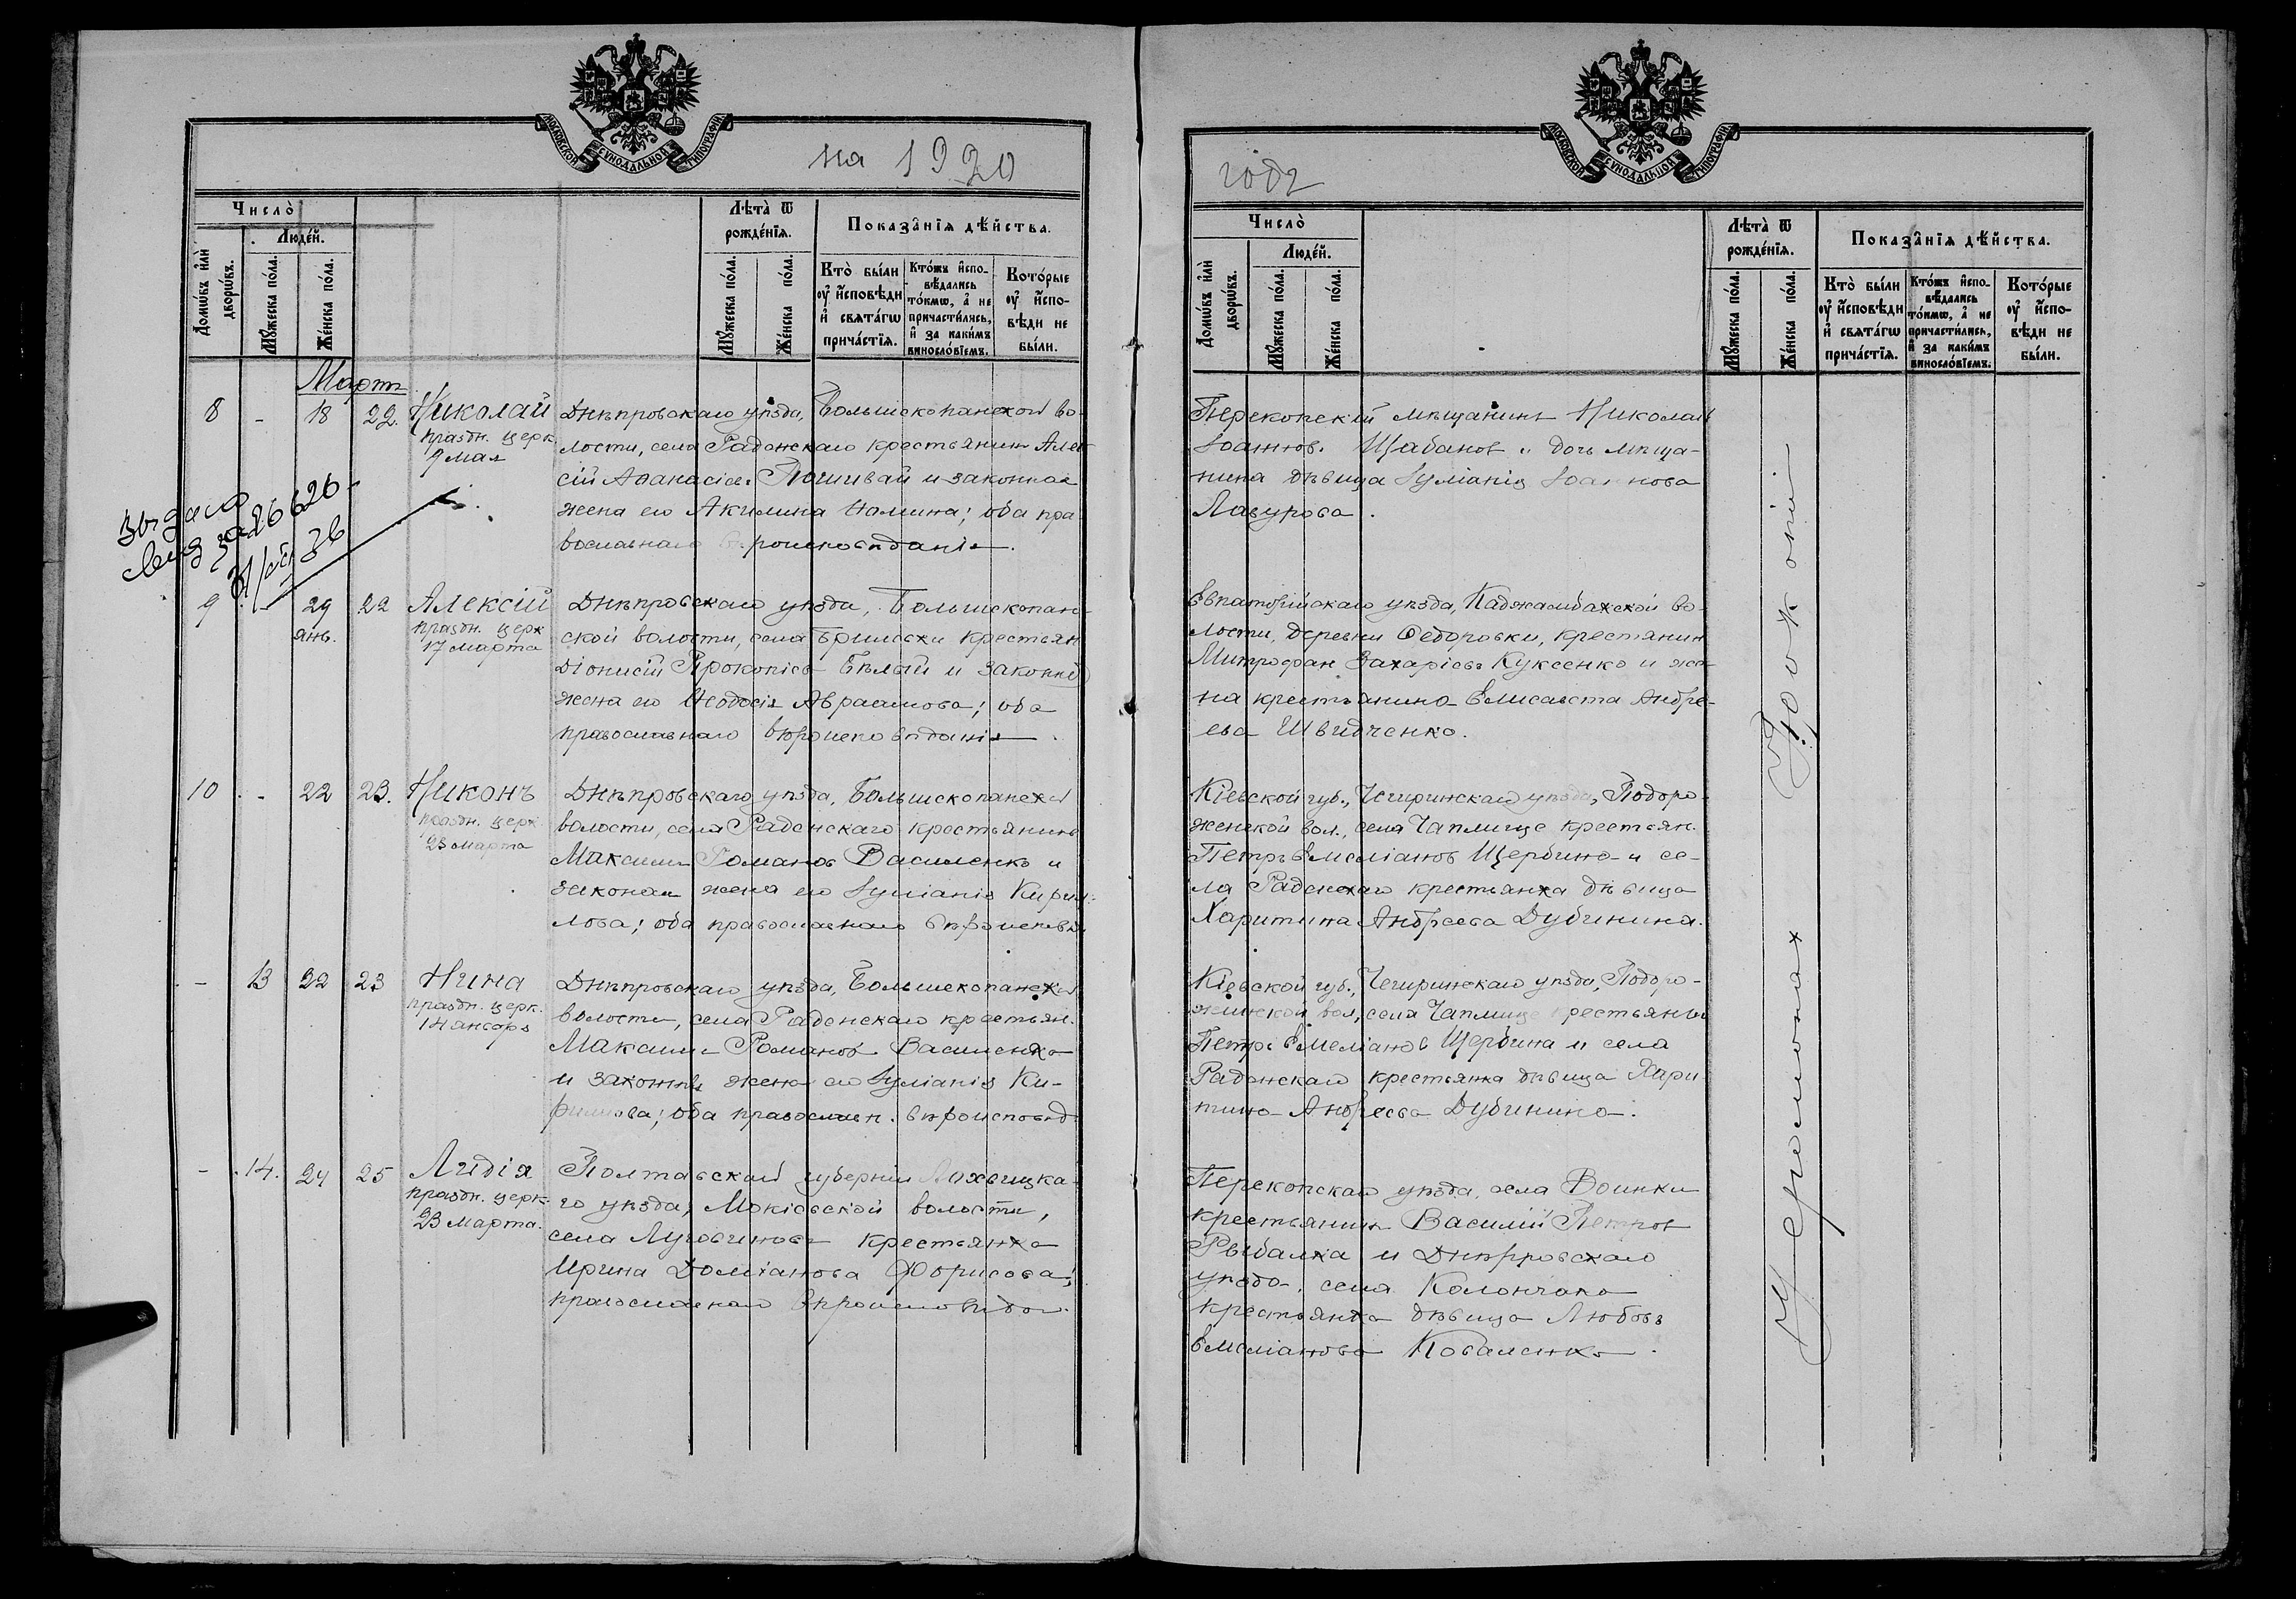 МОСКОВСКОЙ СУНОДАЛЬНОЙ ТИПОГРАФІИ
на 1920
Число̀
Людей.
Домѡвъ и҆лѝ дворѡвъ.
Мꙋжеска по́ла.
Же́нска по́ла.
Лѣта̀ ѿ рожде́нїѧ.
Мꙋжеска по́ла.
Же́нска по́ла.
Показа̂нїѧ дѣ́йства.
Кто̀ бы́ли оу҆ и҆́сповѣди и҆ свѧта́гѡ прича́стїѧ.
Кто́жъ и҆спо-вѣ́дались то́кмѡ, а҆ не причасти́лись, и҆ за каки́мъ винослові́емъ.
Кото́рые оу҆ и҆́спо-вѣди не бы́ли.
Мартъ
8 - 18 22. Николай
праздн. церк.
9 мая
Днѣпровскаго уѣзда, Большекопанской во-
лости, села Раденскаго крестьянин Алек
сій Аѳанасіев Почивай и законная
жена его Акилина Фомина; оба пра
вославнаго вѣроисповѣданія.
9 - 29 22 Алексій
янв.
праздн. церк
17 марта
Днѣпровскаго уѣзда, Большекопан-
ской волости, села Брилевки крестьян
Діонисій Прокопіев Бѣлый и законная
жена его Ѳеодосія Авраамова; оба
православнаго вѣроисповѣданія.
10 - 22 23. Никонъ
праздн. церк.
23 марта
Днѣпровскаго уѣзда, Большекопанской
волости, села Раденскаго крестьянин
Максим Романов Василенко и
законная жена его Іуліанія Кирил-
лова; оба православнаго вѣроисповѣд.
- 13 22 23 Нина
праздн. церк.
14 января
Днѣпровскаго уѣзда, Большекопанской
волости, села Раденскаго крестьян.
Максим Романов Василенко
и законная жена его Іуліанія Ки-
риллова; оба православн. вѣроисповѣд.
- 14. 24 25 Лидія
праздн. церк.
23 марта.
Полтавской губерніи Лохвицка-
го уѣзда, Мокіевской волости,
села крестьянка
Ирина Доміанова Борисова;
православнаго вѣроисповѣдан.
МОСКОВСКОЙ СУНОДАЛЬНОЙ ТИПОГРАФІИ
годъ
Число̀
Людей.
Домѡвъ и҆лѝ дворѡвъ.
Мꙋжеска по́ла.
Же́нска по́ла.
Лѣта̀ ѿ рожде́нїѧ.
Мꙋжеска по́ла.
Же́нска по́ла.
Показа̂нїѧ дѣ́йства.
Кто̀ бы́ли оу҆ и҆́сповѣди и҆ свѧта́гѡ прича́стїѧ.
Кто́жъ и҆спо-вѣ́дались то́кмѡ, а҆ не причасти́лись, и҆ за каки́мъ винослові́емъ.
Кото́рые оу҆ и҆́спо-вѣди не бы́ли.
Перекопскій мѣщанинъ Николай
Іоаннов. Щабанов и дочь мѣща-
нина дѣвица Іуліанія Іоаннова
Лазурова.
Евпаторійскаго уѣзда, Каджамбакской во-
лости, деревни Ѳедоровки, крестьянин
Митрофан Захаріев Куксенко и же-
на крестьянина Елисавета Андре-
ева Швидченко.
Кіевской губ., Чигиринскаго уѣзда, Подоро-
женской вол., села Чаплище крестьян.
Петръ Емеліанов Щербина и се-
ла Раденскаго крестьянка дѣвица
Харитина Андреева Дубинина.
Кіевской губ., Чигиринскаго уѣзда, Подоро-
жинской вол., села Чаплище крестьянин
Петръ Емеліанов Щербина и села
Раденскаго крестьянка дѣвица Хари
тина Андреева Дубинина.
Перекопскаго уѣзда, села Воинки
крестьянин Василій Петров
Рыбалка и Днѣпровскаго
уѣзда, села Каланчака
крестьянка дѣвица Любовь
Емеліанова Коваленко.
Іеромонах